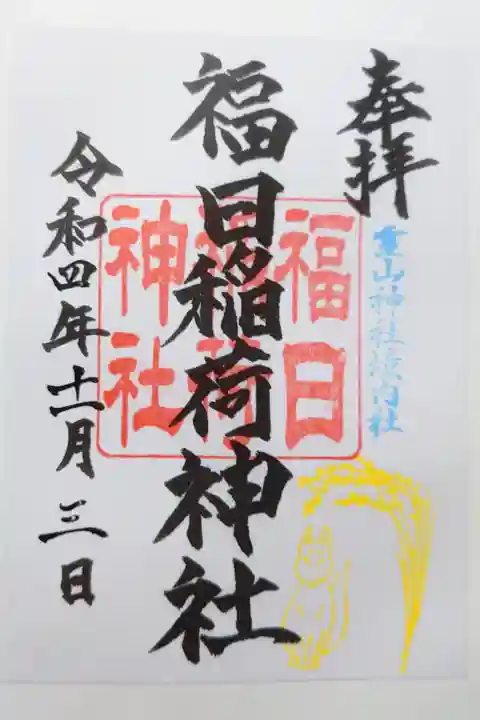 奉拝
重山神社境内社
福日稲荷神社
福日
稲荷
神社
令和四年十一月三日